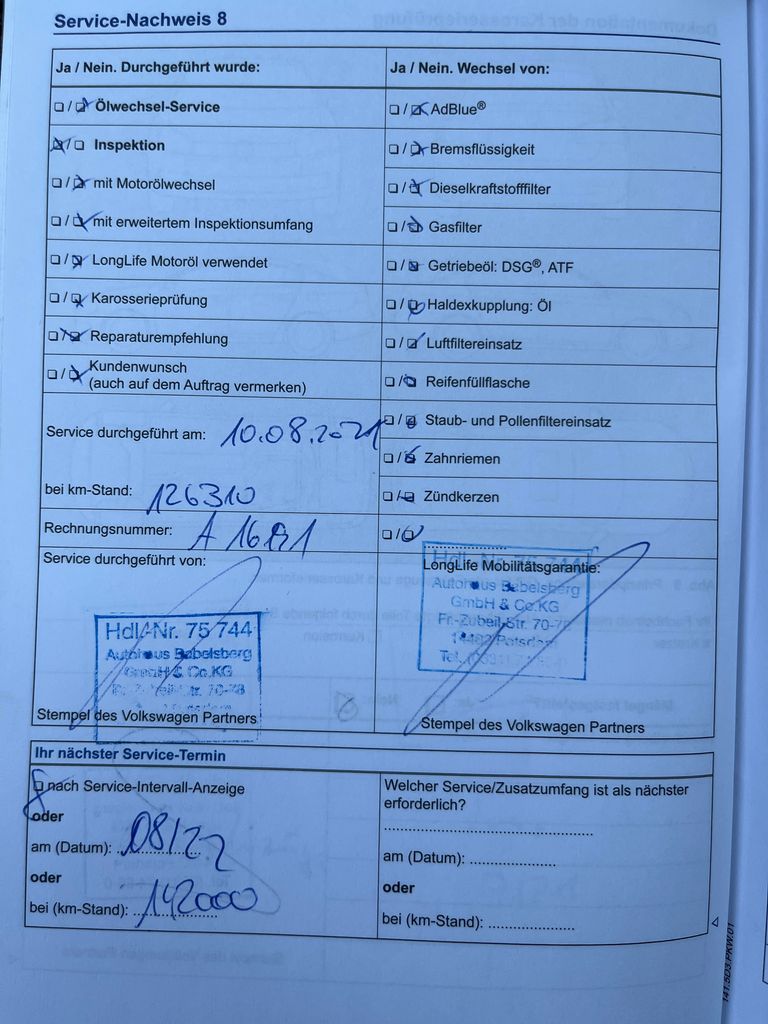 Service-Nachweis 8
Ja / Nein. Durchgeführt wurde:
☐ / ☒ Ölwechsel-Service
☒ / ☐ Inspektion
☐ / ☒ mit Motorölwechsel
☐ / ☒ mit erweitertem Inspektionsumfang
☐ / ☒ LongLife Motoröl verwendet
☐ / ☒ Karosserieprüfung
☐ / ☒ Reparaturempfehlung
☐ / ☒ Kundenwunsch
(auch auf dem Auftrag vermerken)
Service durchgeführt am: 10.08.2021
bei km-Stand: 126310
Rechnungsnummer:
Service durchgeführt von:
Hdl.-Nr. 75 744
Autohaus Babelsberg
GmbH & Co.KG
Stempel des Volkswagen Partners
Ja / Nein. Wechsel von:
☐ / ☒ AdBlue®
☐ / ☒ Bremsflüssigkeit
☐ / ☒ Dieselkraftstofffilter
☐ / ☒ Gasfilter
☐ / ☒ Getriebeöl: DSG®, ATF
☐ / ☒ Haldexkupplung: Öl
☐ / ☒ Luftfiltereinsatz
☐ / ☒ Reifenfüllflasche
☐ / ☒ Staub- und Pollenfiltereinsatz
☐ / ☒ Zahnriemen
☐ / ☒ Zündkerzen
☐ / ☒
LongLife Mobilitätsgarantie:
Hdl.-Nr. 75 744
Autohaus Babelsberg
GmbH & Co.KG
Fr.-Zubeil-Str. 70-78
Potsdam
Tel.
Stempel des Volkswagen Partners
Ihr nächster Service-Termin
☐ nach Service-Intervall-Anzeige
oder
am (Datum): 08/22
oder
bei (km-Stand): 142000
Welcher Service/Zusatzumfang ist als nächster
erforderlich?
am (Datum):
oder
bei (km-Stand):
141.5D3.PKW.01